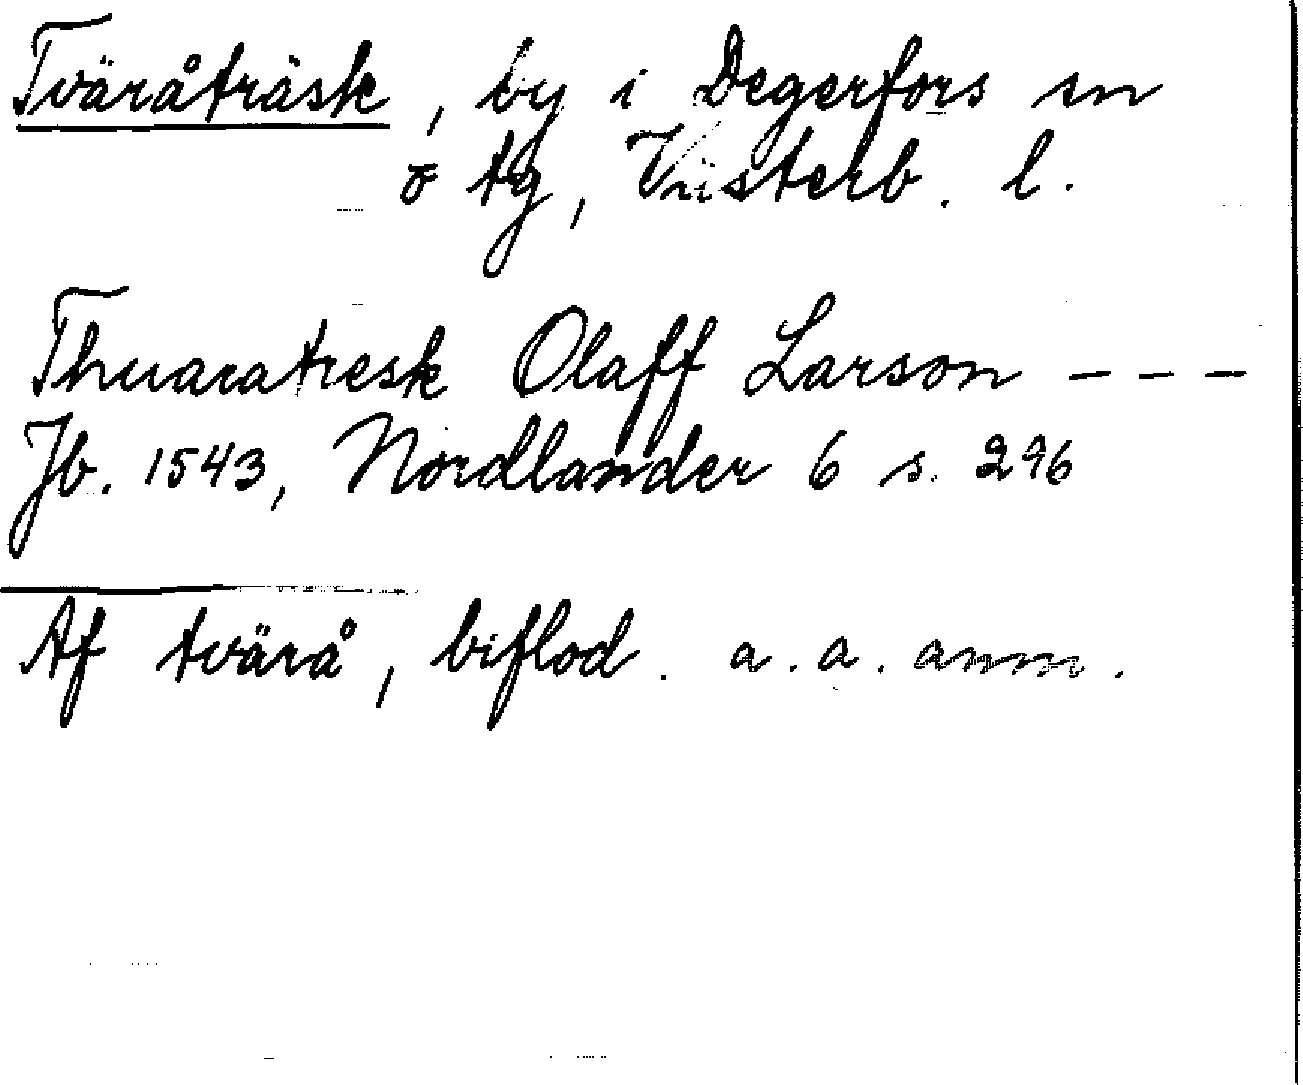 Tväråträsk, by i Degerfors sn
o tg, Västerb. l.
Thuaratresk Olaff Larson - - -
Jb. 1543, Nordlander 6 s. 296
Af tvärå, biflod. a. a. anm.